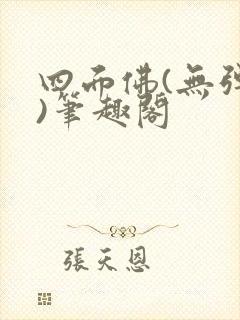 四面佛(無彈
)筆趣閣
張天恩